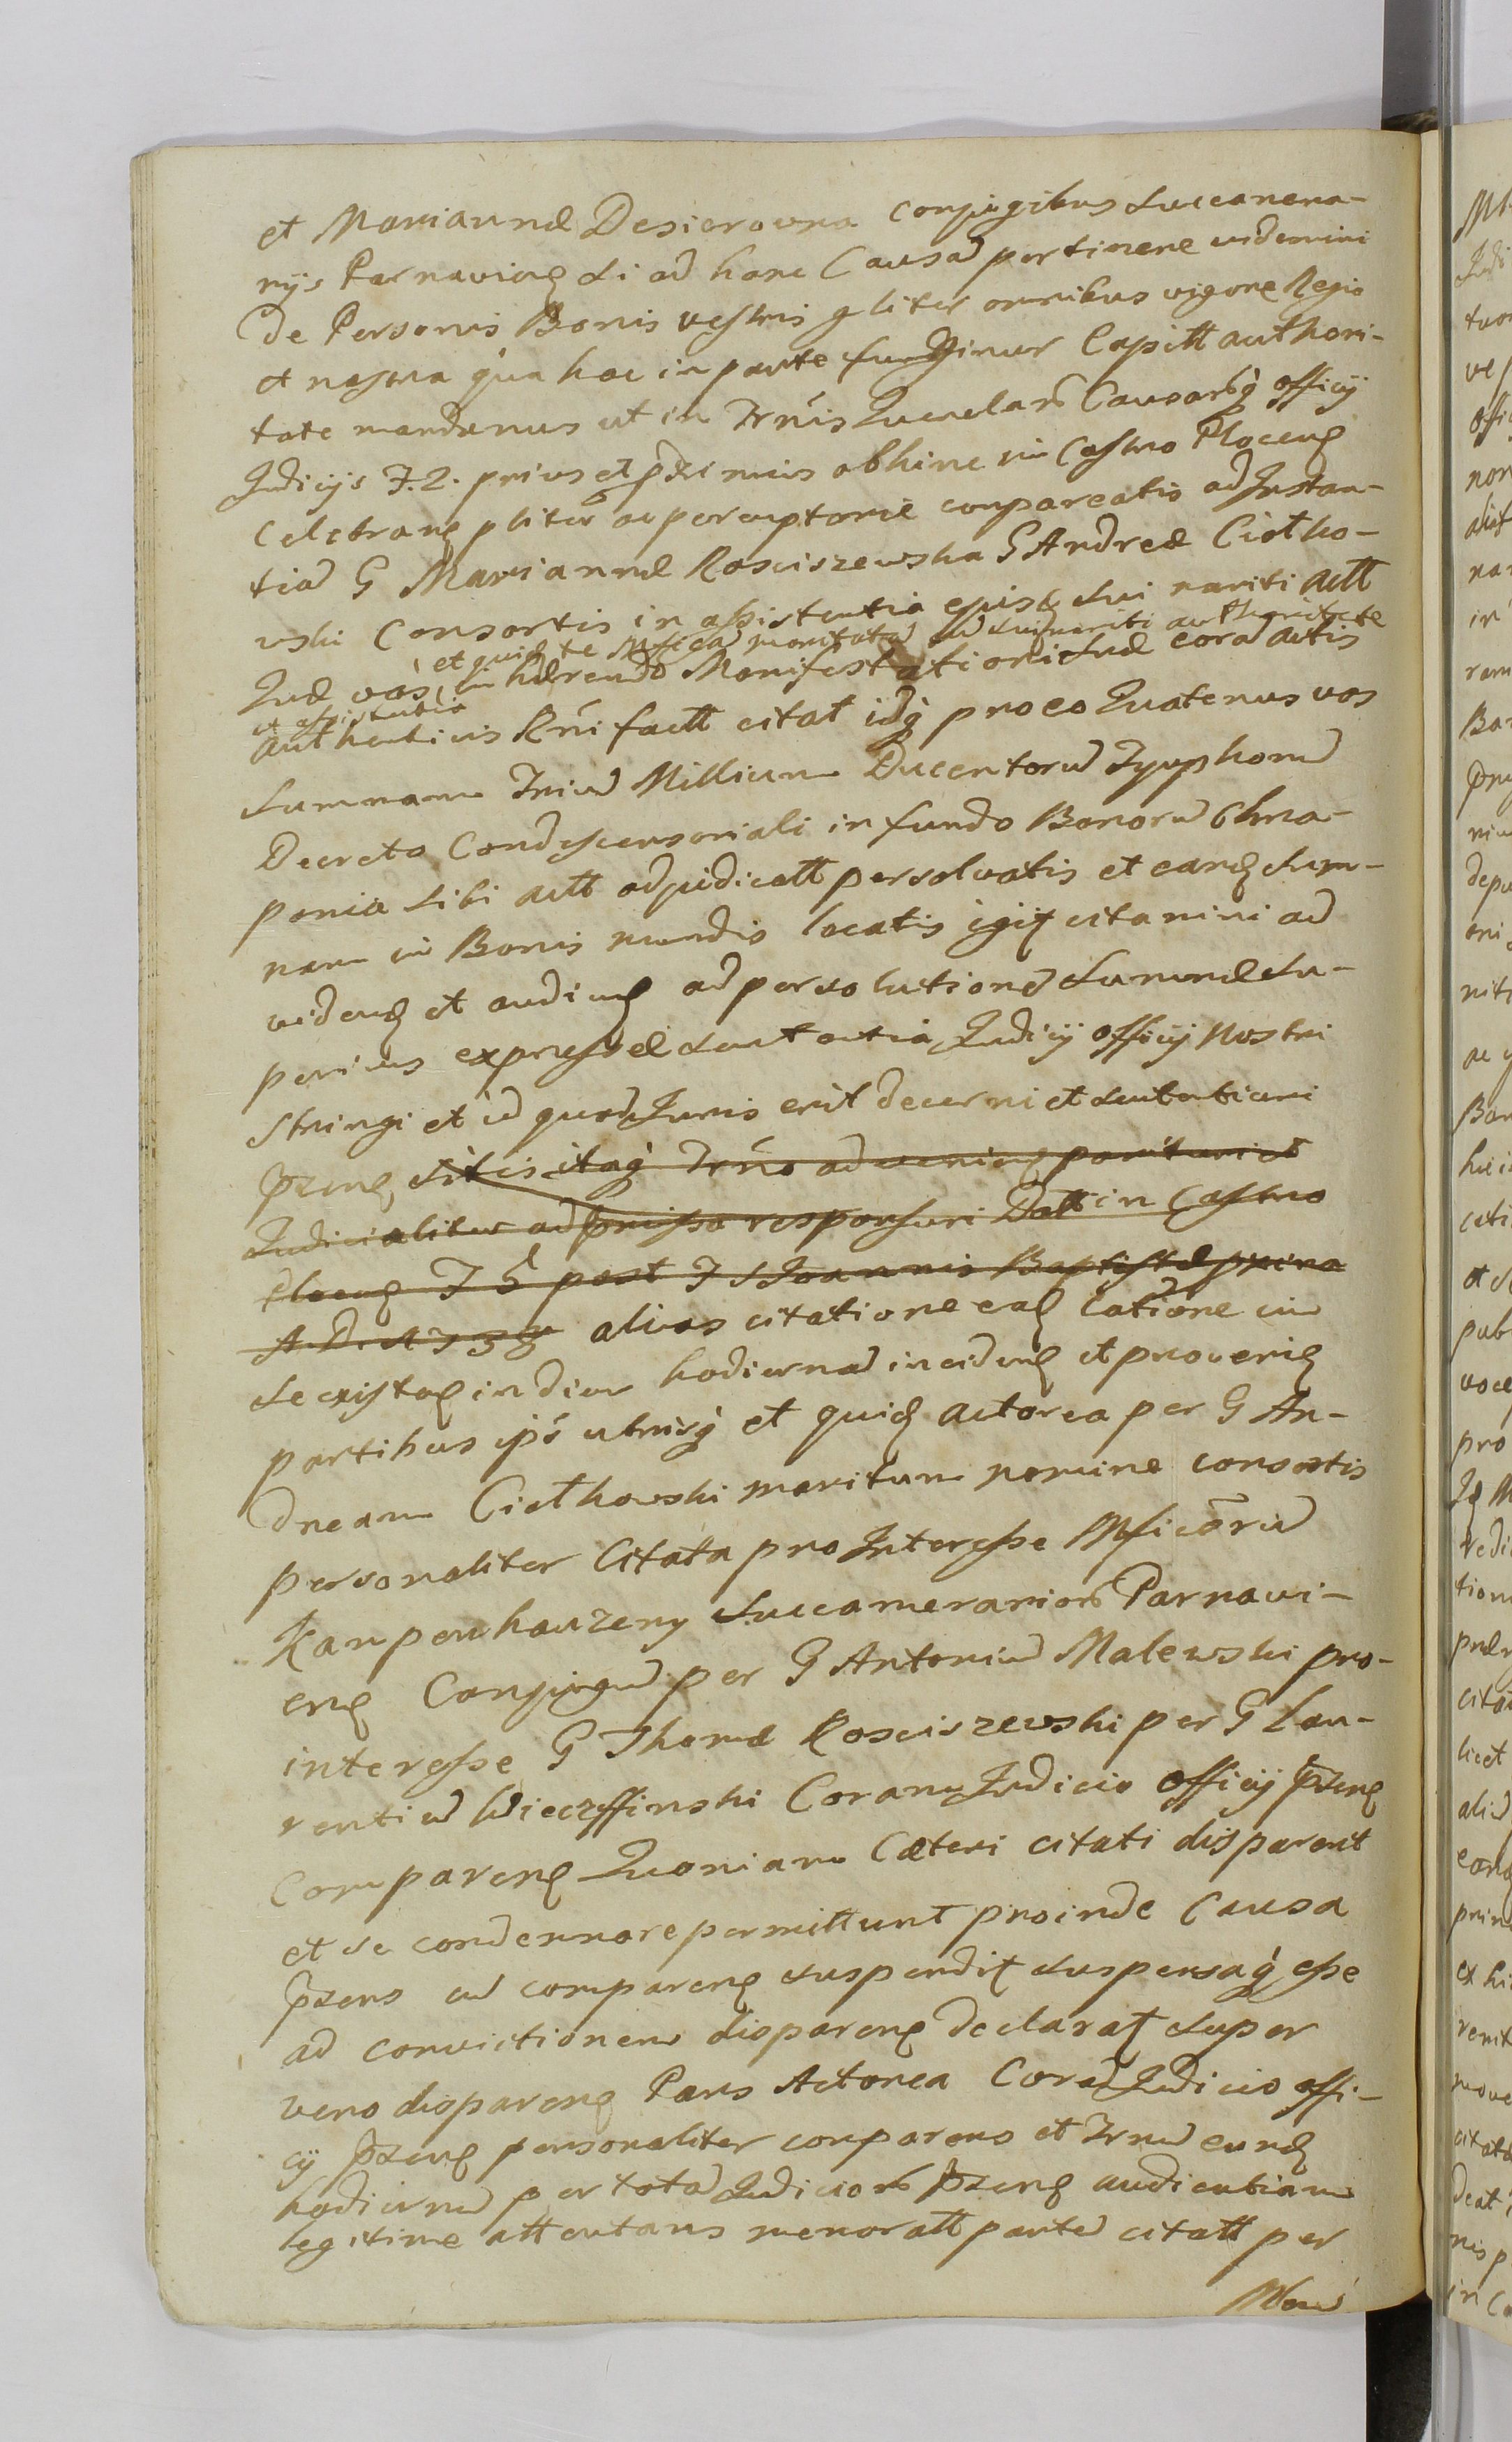 et Mariannæ Desierowna conjugibus Succamera-
rijs Parnavieñ Si ad hanc Causam pertinere videmini
De Personis Bonis vestris gliter omnibus vigore Regia
et nostra qua hac in parte fungimur Capitt authori-
tate mandamus ut in Trnis Querelar Causarq officij
Judicijs F. 2. prius et proximis abhinc in Castro Ploceñ
Celebrañ pliter ac peremptorie compareatis ad Instan-
tiam G Mariannæ Rosciszewska G Andreæ Ciotko-
wski Consortis in assistentia ejusd sui mariti Actt
et quidem te Mficam maritatam cum sui mariti authoritate
Quæ vos, in hærendo Manifestationi suæ coram actis
et assistentia
authenticis Rni factt citat idq pro eo Quatenus vos
Summam Trium Millium Ducentorum Tymphorum
Decreto Condescensoriali in fundo Bonorum Chra-
ponia sibi actt adjudicatt persolvatis et eand Sum-
mam in Bonis mundis locatis igitr citamini ad
videnđ et audienđ ad persolutionem Summæ Su-
perius expressæ Sententia Judicij officij Nostri
stringi et id quod Juris erit decerni et sententiari
pzenñ Sitis itaq Trno advenieñ parituri et
Judicialiter ad præmissa responsuri Datt in Castro
Ploceñ F 5 post F S Joannis Baptistæ proxima
A. D. 1738 alias citatione eađ latione in
se existeñ in diem hodiernam incideñ et provenieñ
partibus ips utrisq et quid actorea per G An-
dream Ciotkowski maritum nomine consortis
personaliter Citata pro Interesse Mficorum
Kampenhauzeny Succamerarior Parnavi-
eñ Conjugum per G Antonium Malewski pro
interesse G Thomæ Rosciszewski per G Lau-
rentium Wieczffinski Coram Judicio officij pzenñ
Compareñ Quoniam Cæteri citati disparent
et se condemnare permittunt proinde Causa
pzens cum compareñ suspenditr suspensaq esse
ad convictionem dispareñ declaratr super
vero dispareñ Pars Actorea Coram Judicio offi-
cij pzenñ personaliter comparens et Trnum eund
hodiernum per totam Judicior pzenñ audientiam
legitime attentans memoratt partem citatt per
Mem